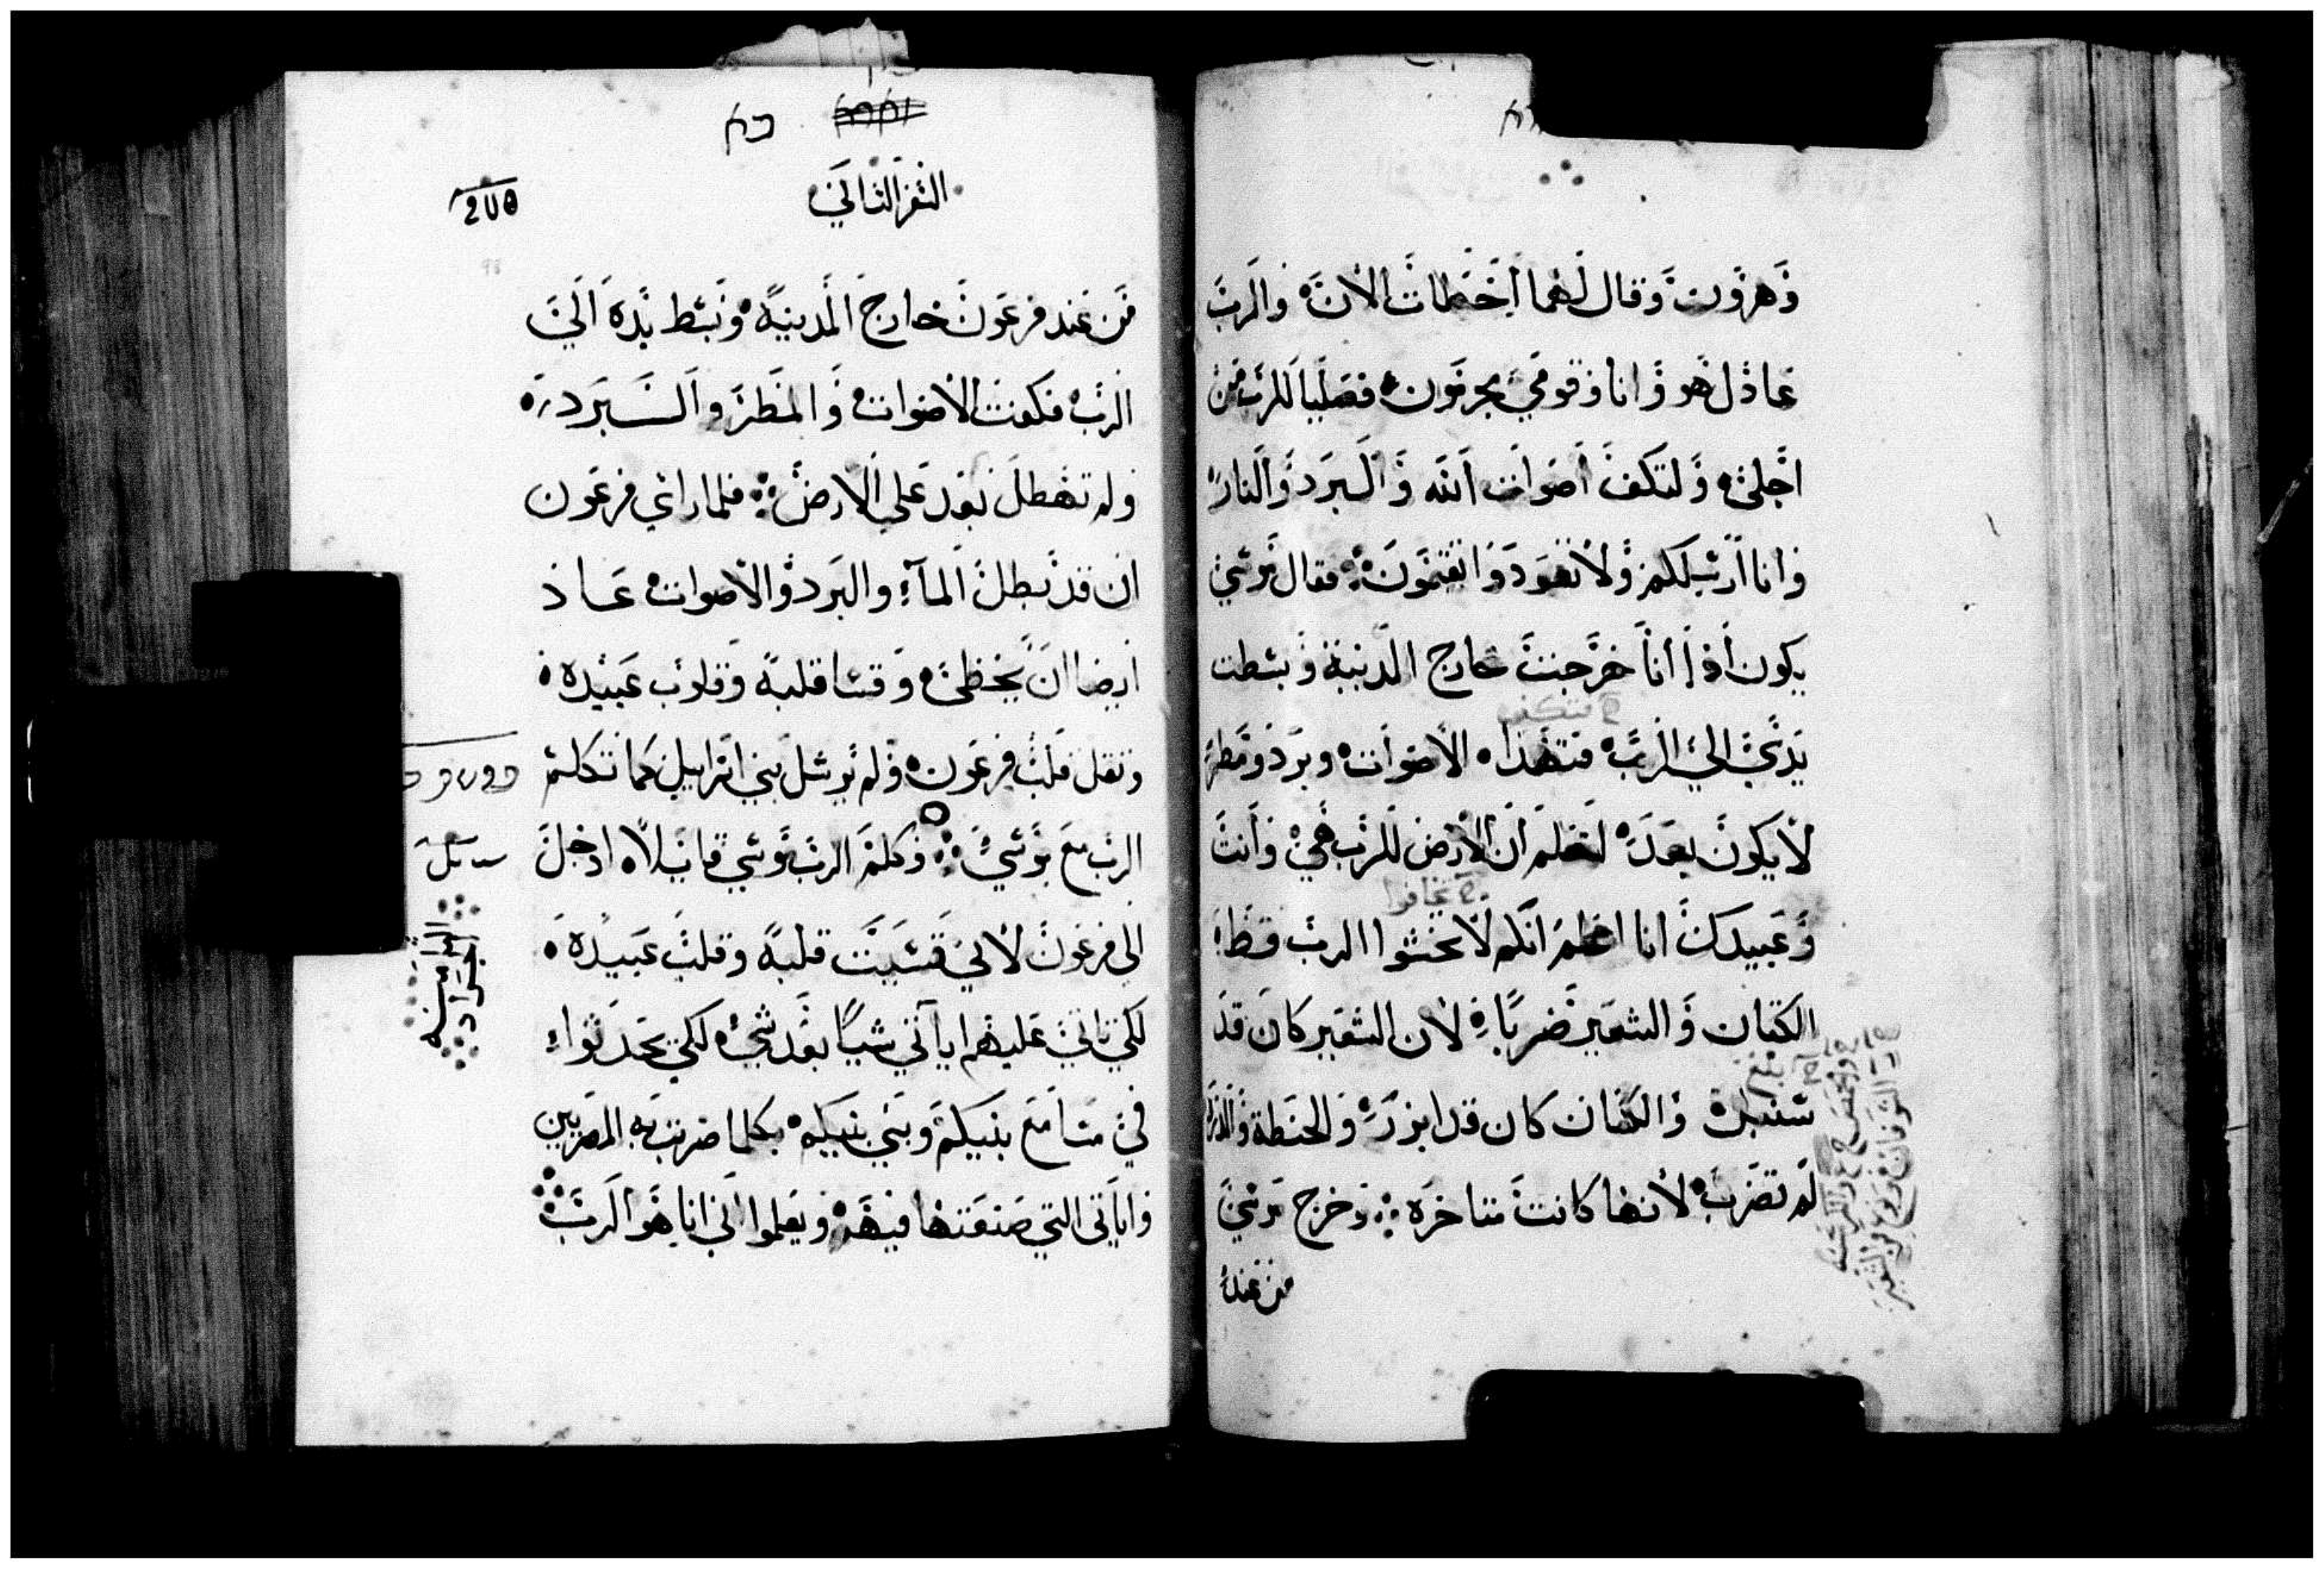 وهرون وقال لهما اخطات الان والرب
عادل هو وانا وقومي مجرمون فصليا للرب من
اجلي ولتكف اصوات الله والبرد والنار
وانا ارسلكم ولا تعود وا تقيمون فقال موسي
يكون اذا انا خرجت خارج المدينة وبسطت
يدي الي الرب فتهدا الاصوات وبرد ومطر
لا يكون بعد لتعلم ان الارض للرب هي وانت
وعبيدك انا اعلم انكم لا تخشوا الرب قط
الكتان والشعير ضربا لان الشعير كان قد
سنبل والكتان كان قد ابزر والحنطة
لم تضرب لانها كانت متاخره وخرج موسي
من عند
السفر الثاني
من عند فرعون خارج المدينة وبسط يده الي
الرب فكفت الاصوات والمطر والبرد
ولم تهطل بعد علي الارض فلما راي فرعون
ان قد بطل المآء والبرد والاصوات عاد
ايضا ان يخطي وقسا قلبه وقلوب عبيده
وثقل قلب فرعون ولم يرسل بني اسراييل كما تكلم
الرب مع موسي وكلم الرب موسي قايلا ادخل
الي فرعون لاني قسيت قلبه وقلب عبيده
لكي تاتي عليهم اياتي شيا بعد شي لكي تحدثوا
في مسامع بنيكم وبني بنيكم بكلما ضربت به المصريين
واياتي التي صنعتها فيهم ويعلموا اني انا هو الرب
الجراد